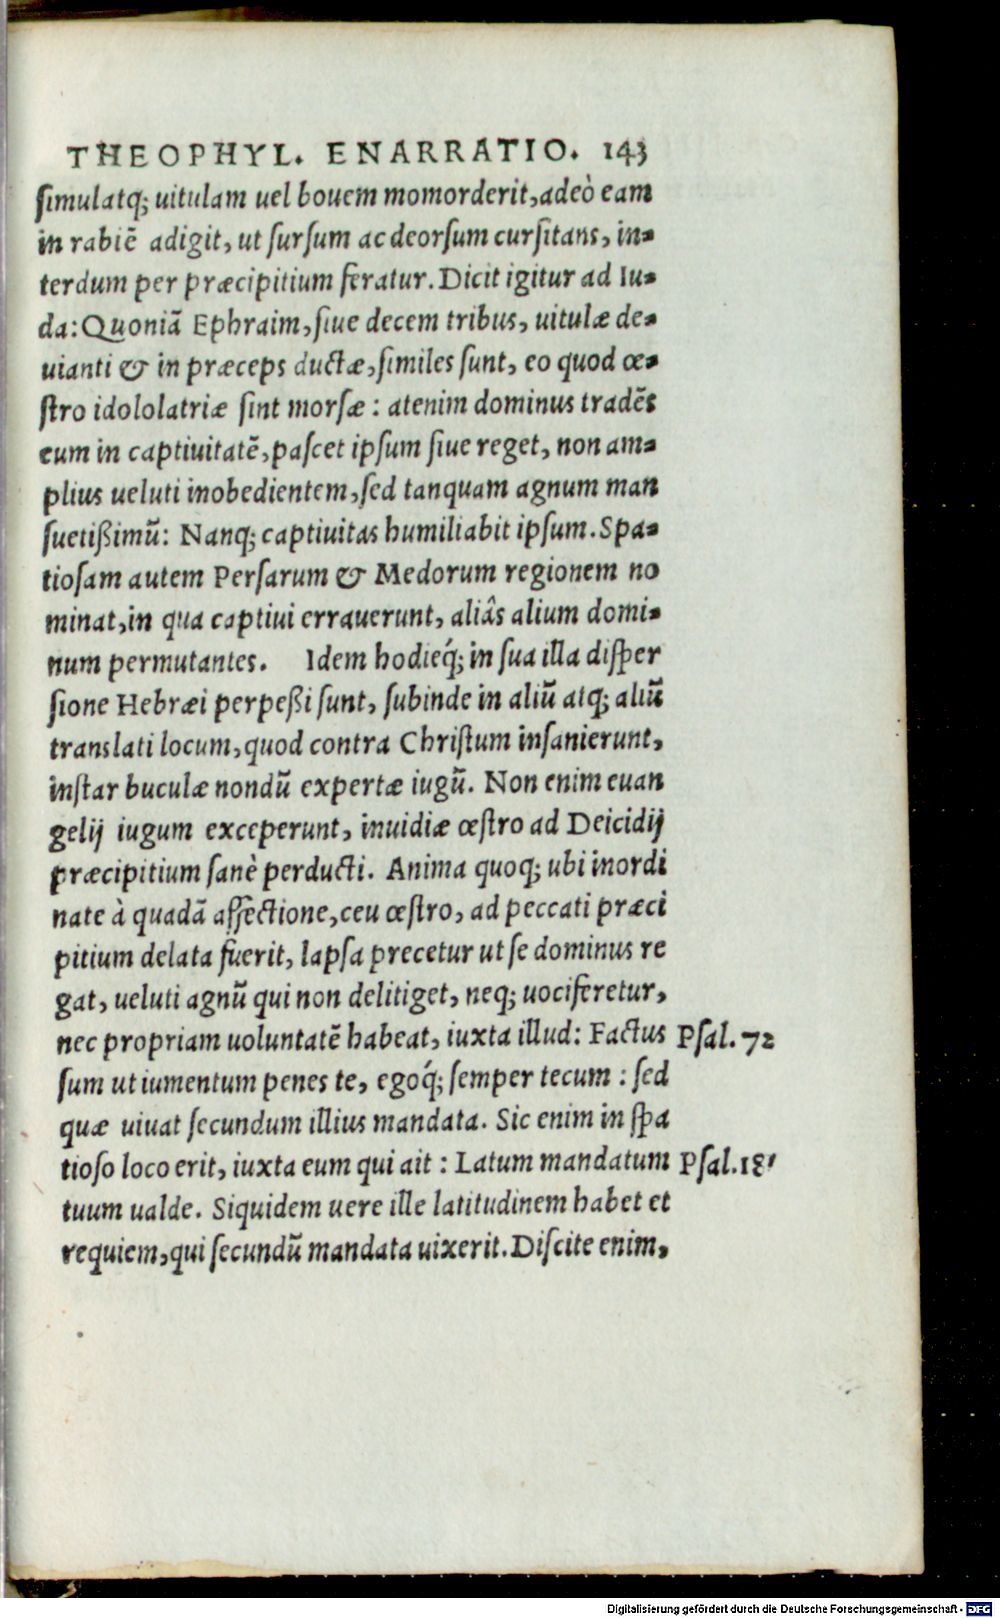 THEOPHYL. ENARRATIO. 143
simulatq; uitulam uel bouem momorderit, adeò eam
in rabiẽ adigit, ut sursum ac deorsum cursitans, in-
terdum per præcipitium feratur. Dicit igitur ad Iu-
da: Quoniã Ephraim, siue decem tribus, uitulæ de-
uianti & in præceps ductæ, similes sunt, eo quod œ-
stro idololatriæ sint morsæ: atenim dominus tradẽs
eum in captiuitatẽ, pascet ipsum siue reget, non am-
plius ueluti inobedientem, sed tanquam agnum man
suetißimũ: Nanq; captiuitas humiliabit ipsum. Spa-
tiosam autem Persarum & Medorum regionem no
minat, in qua captiui errauerunt, aliâs alium domi-
num permutantes. Idem hodieq́; in sua illa disper
sione Hebræi perpeßi sunt, subinde in aliũ atq; aliũ
translati locum, quod contra Christum insanierunt,
instar buculæ nondũ expertæ iugũ. Non enim euan
gelij iugum exceperunt, inuidiæ œstro ad Deicidij
præcipitium sanè perducti. Anima quoq; ubi inordi
nate à quadã affectione, ceu œstro, ad peccati præci
pitium delata fuerit, lapsa precetur ut se dominus re
gat, ueluti agnũ qui non delitiget, neq; uociferetur,
nec propriam uoluntatẽ habeat, iuxta illud: Factus Psal. 72
sum ut iumentum penes te, egoq́; semper tecum: sed
quæ uiuat secundum illius mandata. Sic enim in spa
tioso loco erit, iuxta eum qui ait: Latum mandatum Psal. 18
tuum ualde. Siquidem uere ille latitudinem habet et
requiem, qui secundũ mandata uixerit. Discite enim,
Digitalisierung gefördert durch die Deutsche Forschungsgemeinschaft - DFG